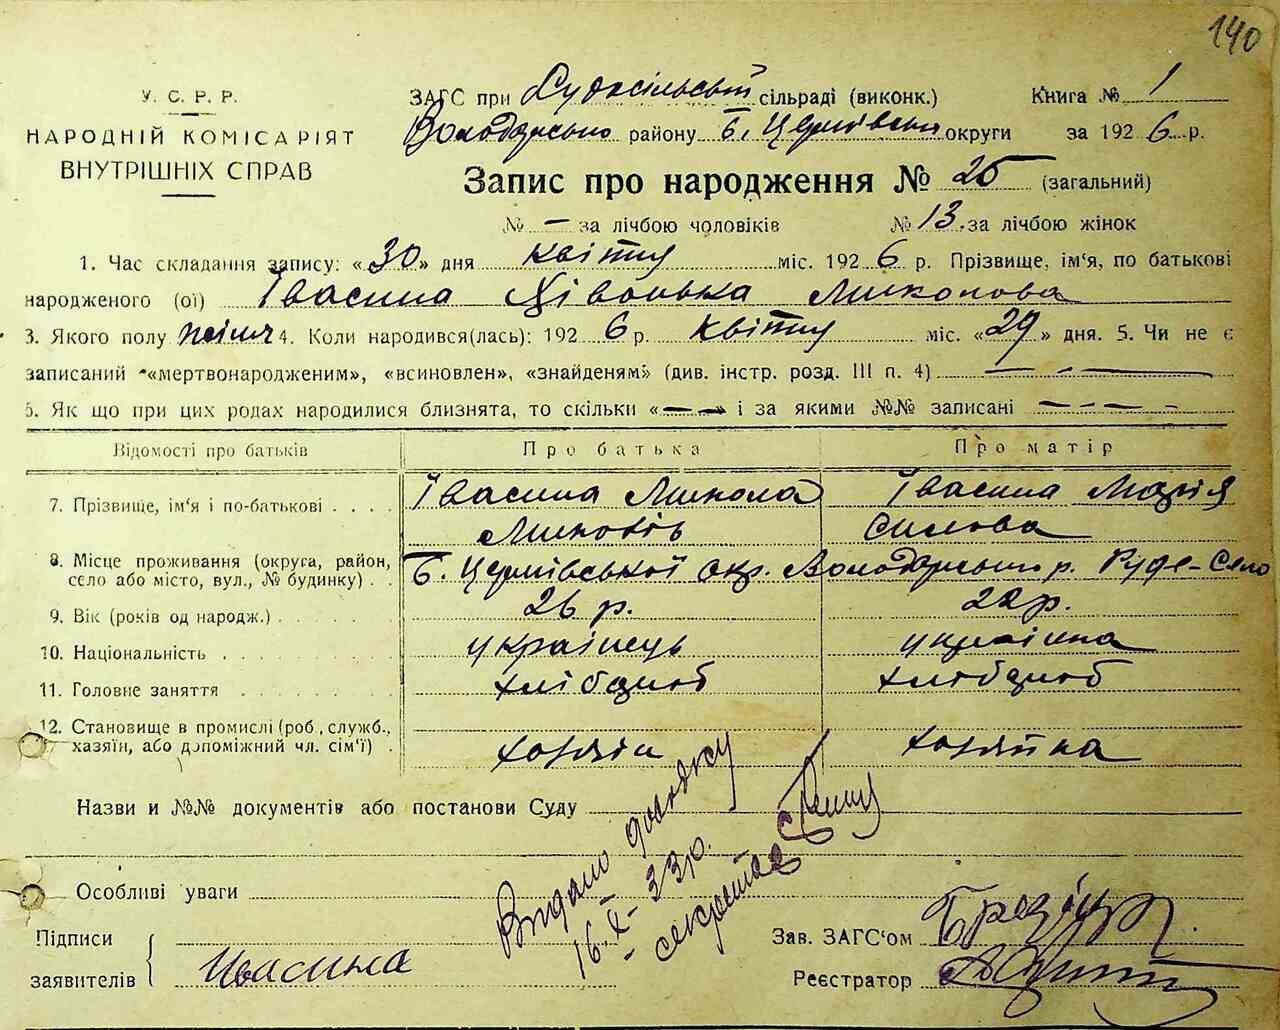 140
У.С.Р.Р.
НАРОДНІЙ КОМІСАРІЯТ
ВНУТРІШНІХ СПРАВ
ЗАГС при Рудосільській сільраді (виконк.) Книга № 1
Володарського району Б. Церківської округи за 1926 р.
Запис про народження № 25 (загальний)
№ — за лічбою чоловіків № 13 за лічбою жінок
1. Час складання запису: «30» дня квітня міс. 1926 р. Прізвище, ім'я, по батькові
народженого (ої) Івасина Миколова
3. Якого полу жіноч 4. Коли народився(лась): 1926 р. квітня міс. «29» дня. 5. Чи не є
записаний «мертвонародженим», «всиновлен», «знайденям» (див. інстр. розд. III п. 4) — — —
5. Як що при цих родах народилися близнята, то скільки «— —» і за якими №№ записані — — — —
Відомості про батьків Про батька Про матір
7. Прізвище, ім'я і по-батькові . . . . Івасина Микола Івасина Марія
Силова
8. Місце проживання (округа, район,
село або місто, вул., № будинку) . . Б. Церківської окр. Володарського р. Руде-Село
9. Вік (років од народж.) . . . . . . 26 р. 22 р.
10. Національність . . . . . . . українець українка
11. Головне заняття . . . . . . . хлібороб хлібороб
12. Становище в промислі (роб., служб.,
хазяїн, або допоміжний чл. сім'ї) . хазяїн хазяйка
Назви и №№ документів або постанови Суду
Особливі уваги
Видано довідку
16-X-33 р.
секретар
Підписи
заявителів
Ивасина
Зав. ЗАГС'ом
Реєстратор